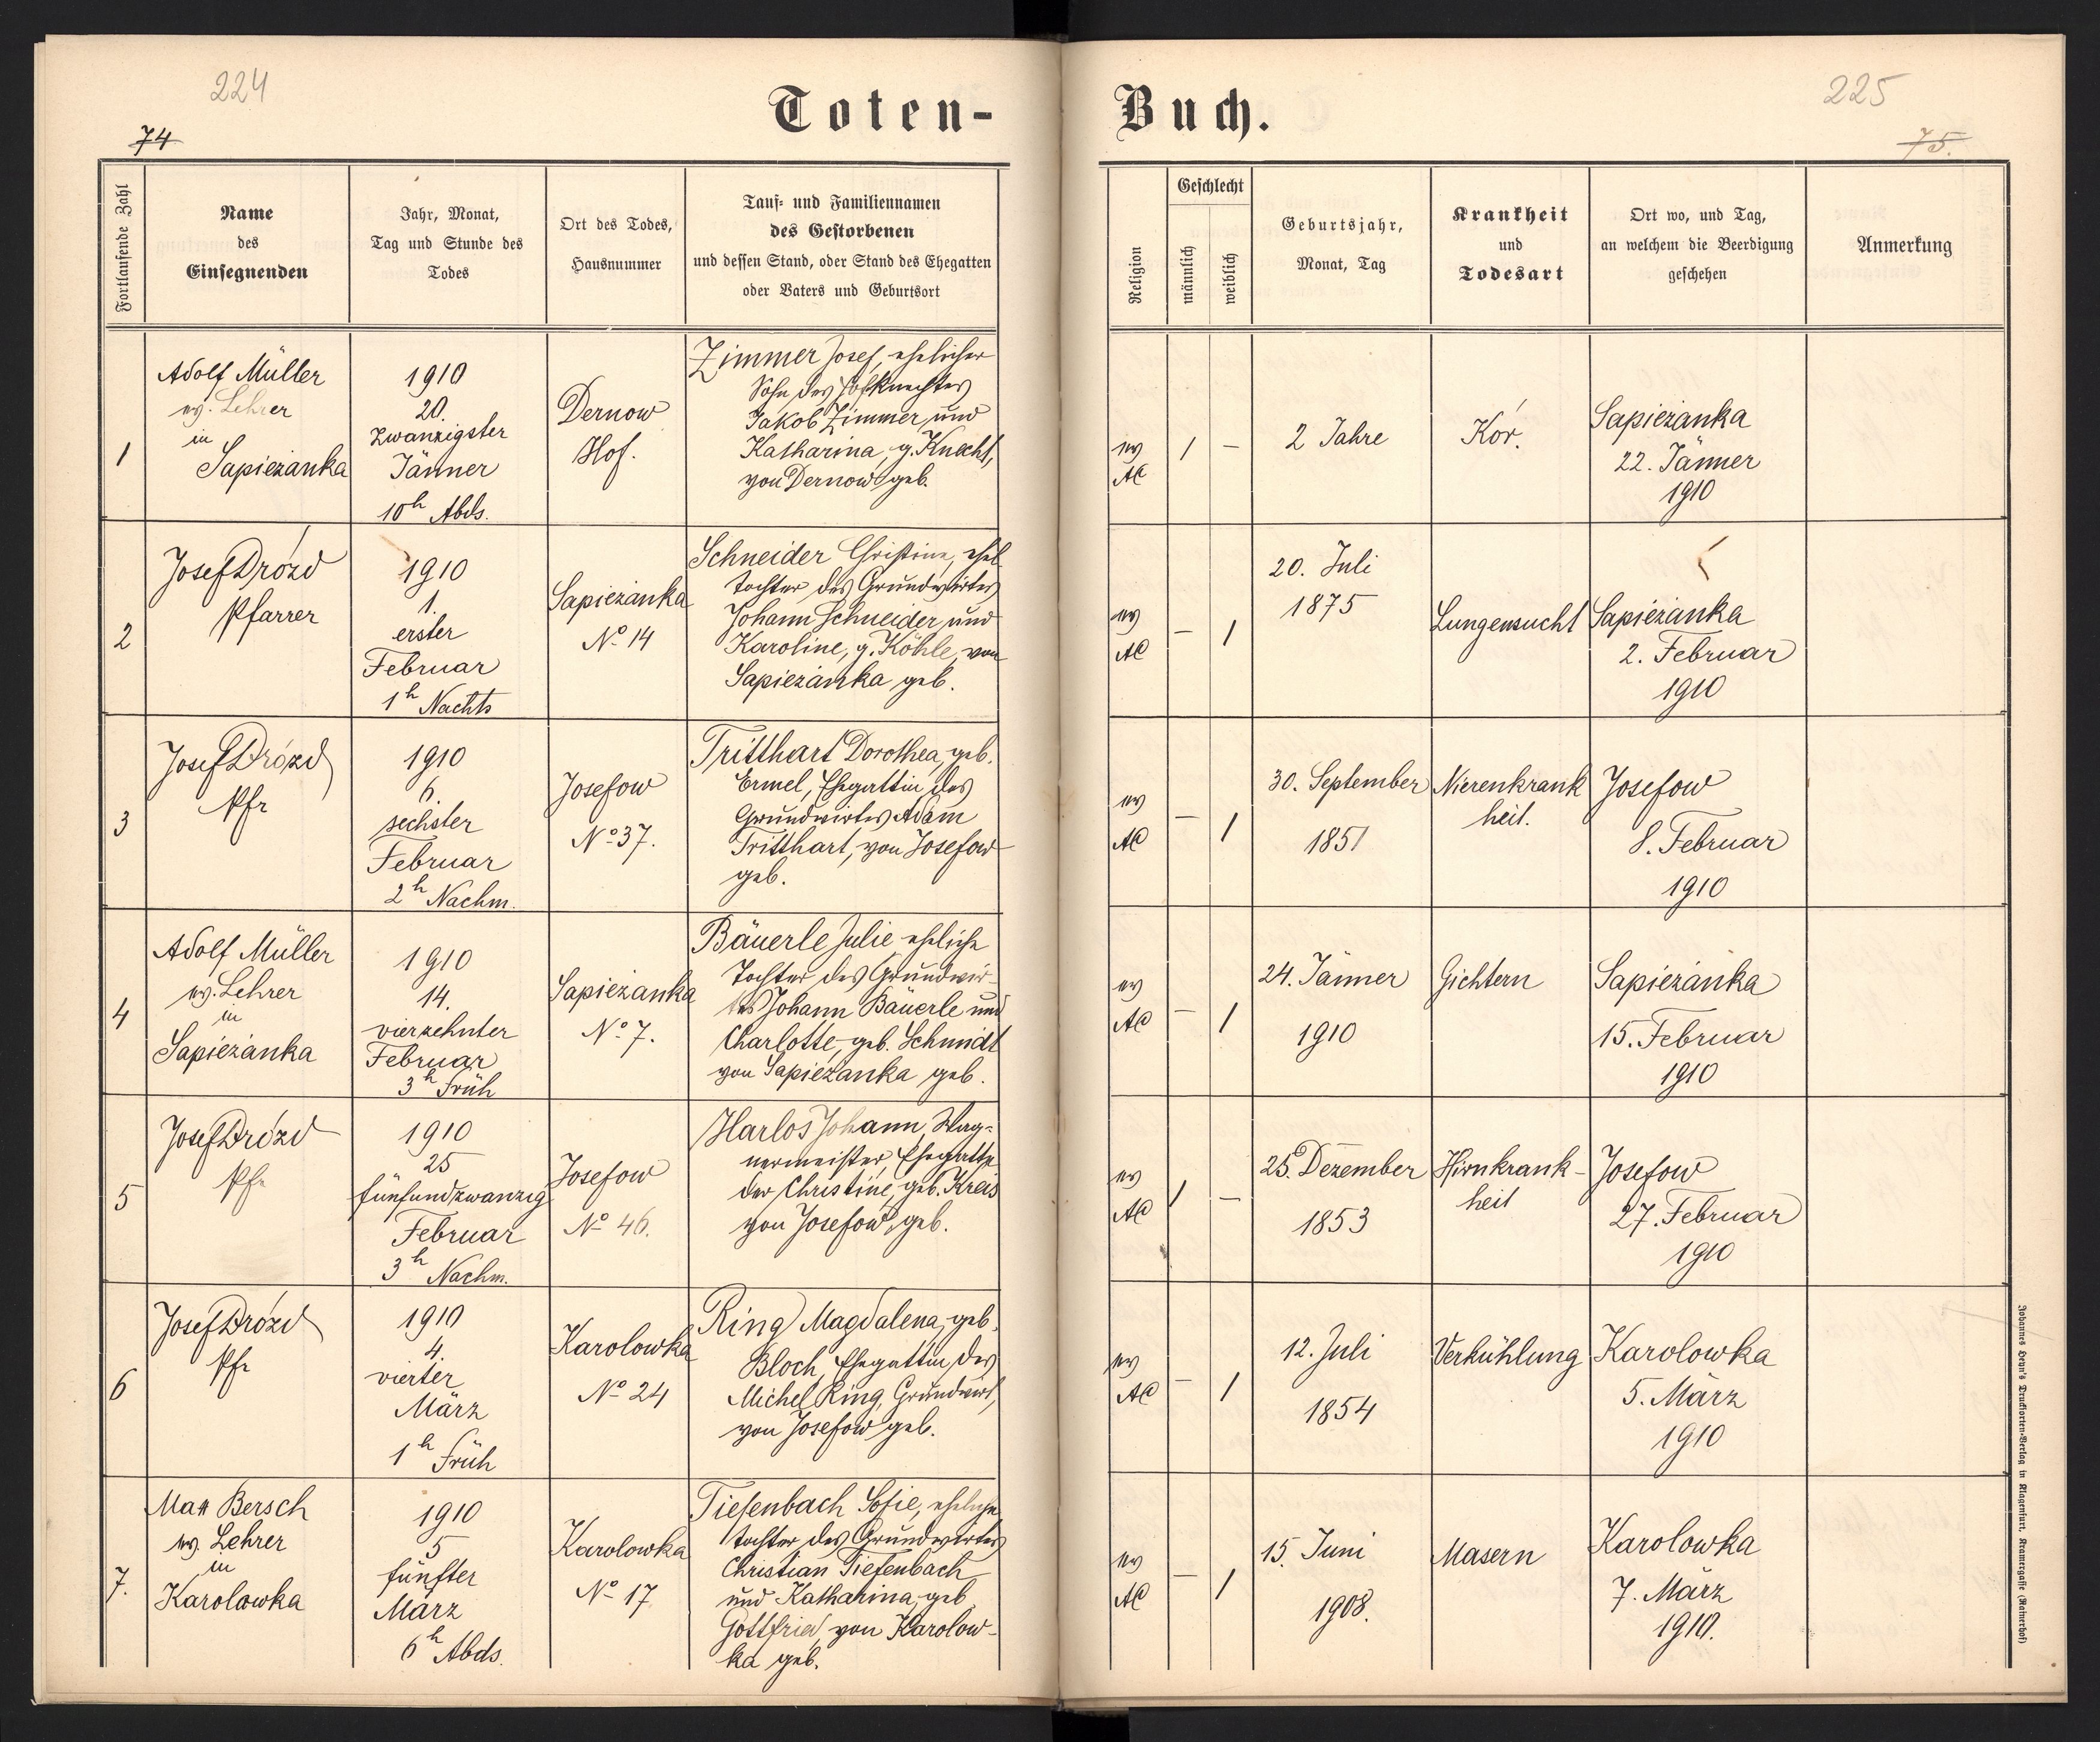 224
74
Toten-
Fortlaufende Zahl
Name
des
Einsegnenden
Jahr, Monat,
Tag und Stunde des
Todes
Ort des Todes,
Hausnummer
Tauf- und Familiennamen
des Gestorbenen
und dessen Stand, oder Stand des Ehegatten
oder Vaters und Geburtsort
1
Adolf Müller
ev. Lehrer
in
Sapieżanka
1910
20.
zwanzigster
Jänner
10h Abds.
Dernow
Hof.
Zimmer Josef, ehelicher
Sohn des Hofknechtes
Jakob Zimmer und
Katharina, g. Knecht,
von Dernow geb.
2
Josef Drózd
Pfarrer
1910
1.
erster
Februar
1h Nachts
Sapieżanka
No 14
Schneider Christine, ehel
Tochter des Grundwirtes
Johann Schneider und
Karoline, g. Köhle, von
Sapieżanka geb.
3
Josef Drózd
Pfr
1910
6.
sechster
Februar
2h Nachm.
Josefow
No 37.
Tritthart Dorothea, geb.
Ermel, Ehegattin des
Grundwirtes Adam
Tritthart, von Josefow
geb.
4
Adolf Müller
ev. Lehrer
in
Sapieżanka
1910
14.
vierzehnter
Februar
3h Früh
Sapieżanka
No 7.
Bäuerle Julie eheliche
Tochter des Grundwir-
tes Johann Bäuerle und
Charlotte, geb. Schmidt
von Sapieżanka geb.
5
Josef Drózd
Pfr
1910
25
fünfundzwanzig
Februar
3h Nachm.
Josefow
No 46.
Harlos Johann, Wag-
nermeister, Ehegatte
der Christine, geb. Kreis
von Josefow, geb.
6
Josef Drózd
Pfr
1910
4.
vierter
März
1h Früh
Karolowka
No 24
Ring Magdalena, geb.
Bloch, Ehegattin des
Michel Ring, Grundwirt,
von Josefow geb.
7.
Max Bersch
ev. Lehrer
in
Karolowka
1910
5
fünfter
März
6h Abds.
Karolowka
No 17
Tiefenbach Sofie, eheliche
Tochter des Grundwirtes
Christian Tiefenbach
und Katharina, geb.
Gottfried, von Karolow-
ka geb.
225
75.
Buch.
Religion
Geschlecht
männlich
weiblich
Geburtsjahr,
Monat, Tag
Krankheit
und
Todesart
Ort wo, und Tag,
an welchem die Beerdigung
geschehen
Anmerkung
ev
AC
1
–
2 Jahre
Kór.
Sapieżanka
22. Jänner
1910
ev
AC
–
1
20. Juli
1875
Lungensucht
Sapieżanka
2. Februar
1910
ev
AC
–
1
30. September
1851
Nierenkrank
heit.
Josefow
8. Februar
1910
ev
AC
–
1
24. Jänner
1910
Gichtern
Sapieżanka
15. Februar
1910
ev
AC
1
–
25. Dezember
1853
Hirnkrank-
heit
Josefow
27. Februar
1910
ev
AC
–
1
12. Juli
1854
Verkühlung
Karolowka
5. März
1910
ev
AC
–
1
15. Juni
1908.
Masern
Karolowka
7. März
1910.
Johannes Heyn's Drucksorten-Verlag in Klagenfurt, Kramergasse (Rainerhof)